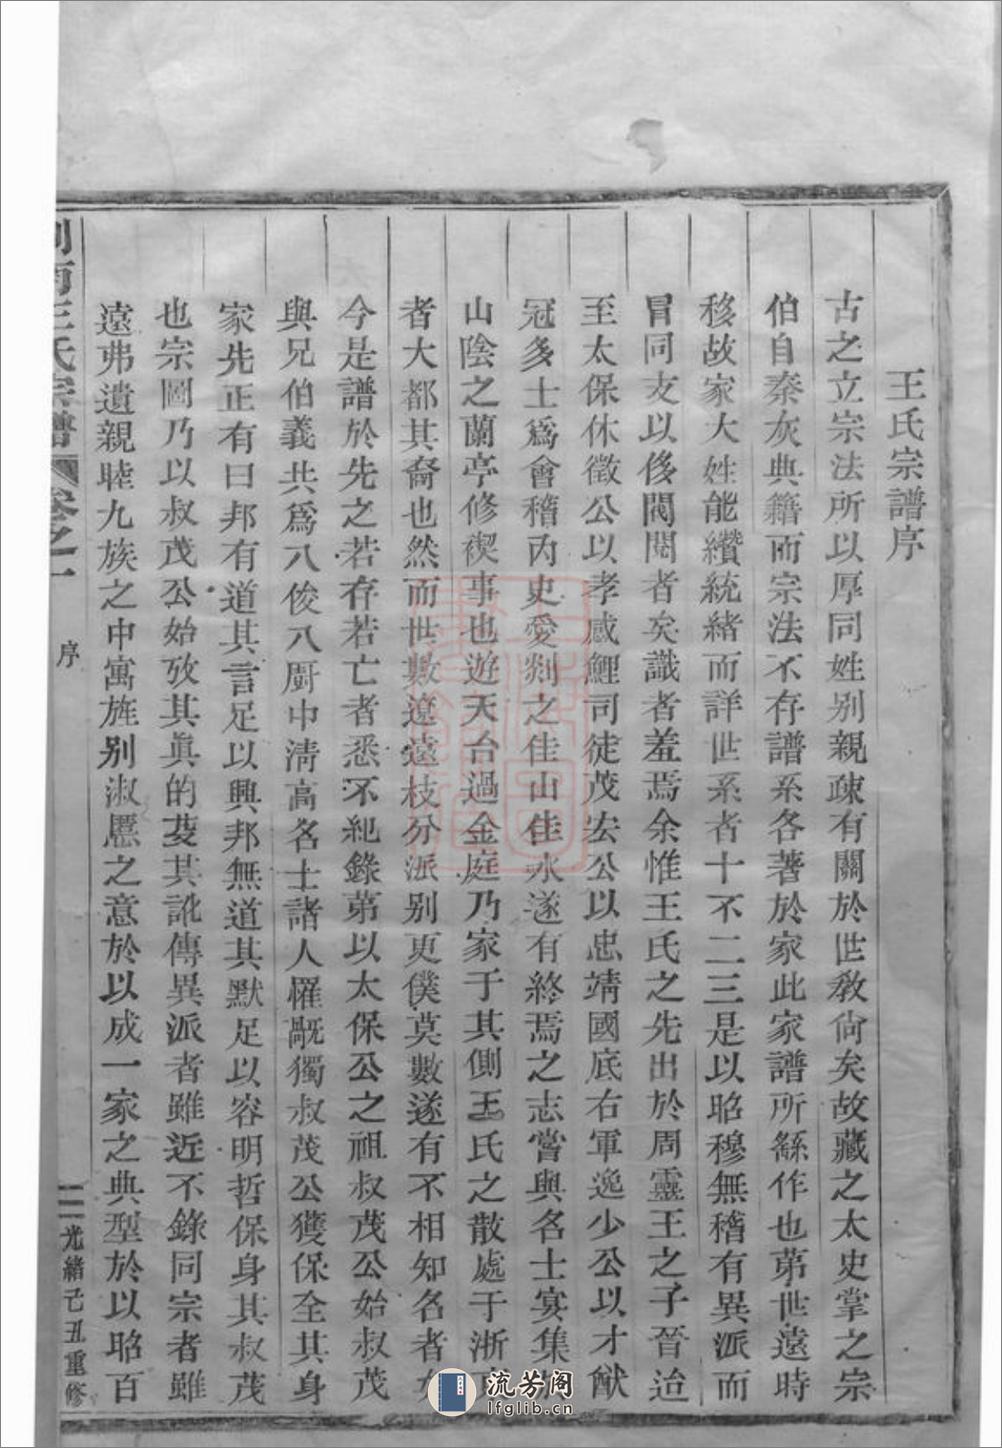 王氏宗譜序
古之立宗法所以厚同姓別親疎有關於世教尙矣故藏之太史掌之宗
伯自秦灰典籍而宗法不存譜系各著於家此家譜所繇作也苐世遠時
移故家大姓能纘統緒而詳世系者十不二三是以昭穆無稽有異派而
冒同支以侈閥閱者矣識者羞焉余惟王氏之先出於周靈王之子晉迨
至太保休徵公以孝感鯉司徒茂宏公以忠靖國底右軍逸少公以才猷
冠多士爲會稽內史愛剡之佳山佳水遂有終焉之志嘗與名士宴集
山陰之蘭亭修禊事也遊天台過金庭乃家于其側王氏之散處于浙
者大都其裔也然而世數遼遠枝分派別更僕莫數遂有不相知名者
今是譜於先之若存若亡者悉不紀錄苐以太保公之祖叔茂公始叔茂
與兄伯義共爲八俊八廚中淸高名士諸人罹戮獨叔茂公獲保全其身
家先正有曰邦有道其言足以興邦無道其默足以容明哲保身其叔茂
也宗圖乃以叔茂公始攷其眞的芟其訛傳異派者雖近不錄同宗者雖
遠弗遺親睦九族之中寓旌別淑慝之意於以成一家之典型於以昭百
南王氏宗譜 卷之一 序 二 光緒己丑重修
流芳阁
lfglib.cn